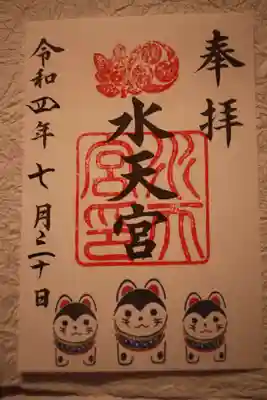 奉拝
水天宮
水天宮印
令和四年七月二十日